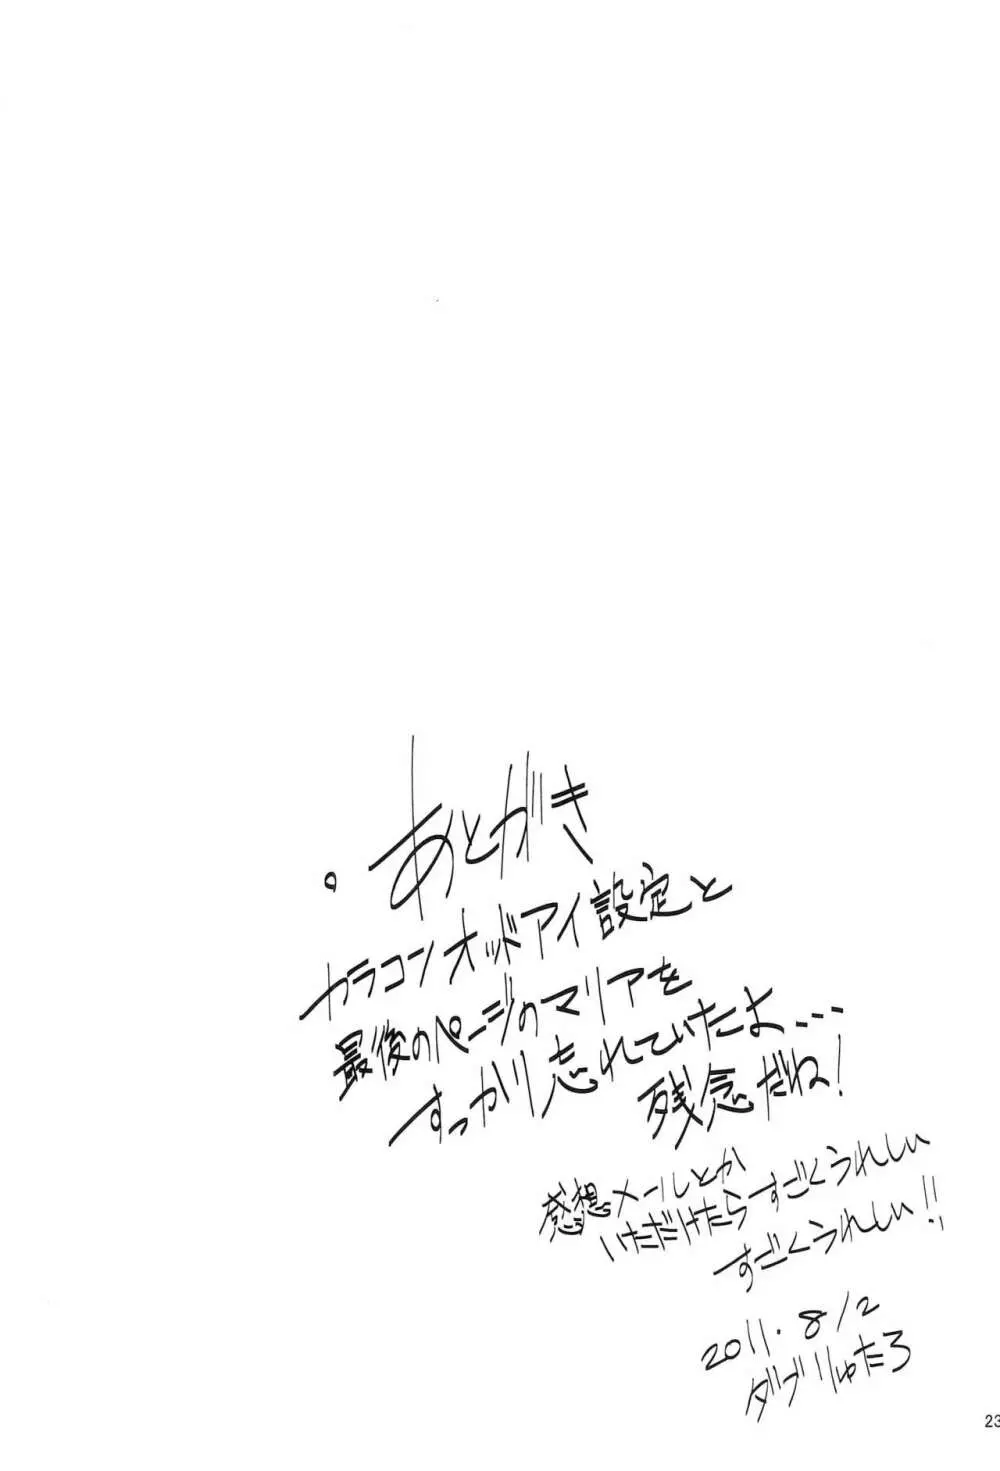 ・あとがき
カラコンオッドアイ設定と
最後のページのマリアを
すっかり忘れていたよ・・・
残念だね!
感想メールとか
いただけたらすごくうれしい
すごくうれしい!!
2011.8/2
ダブりゅたろ
23